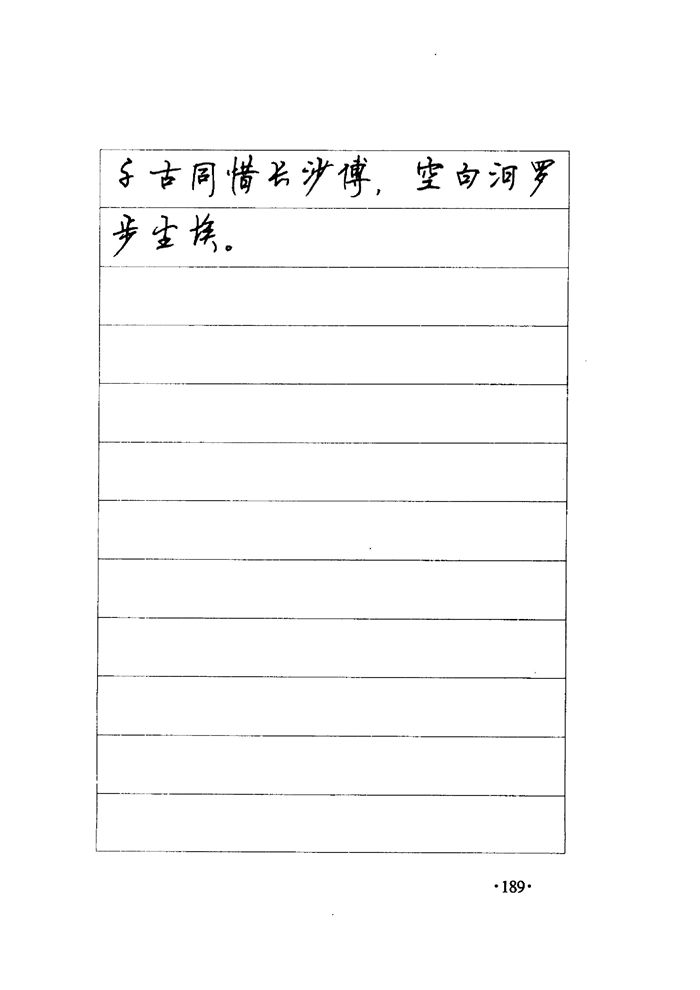 千古同惜长沙傅，空白汨罗
步尘埃。
·189·